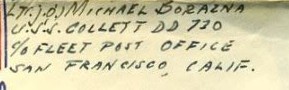 Lt(j.g.) MICHAEL BORAZNA
U.S.S. COLLETT DD 730
c/o FLEET POST OFFICE
SAN FRANCISCO, CALIF.